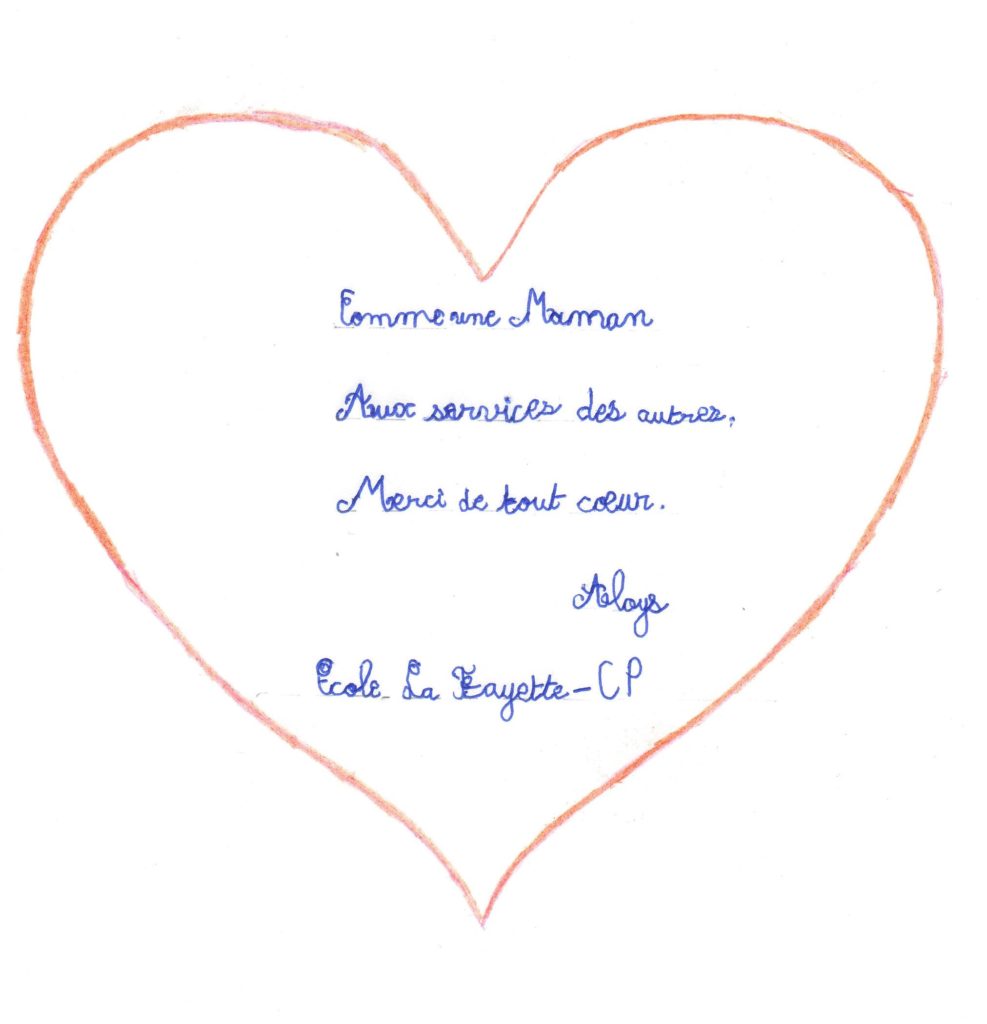 Comme une Maman
Aux services des autres.
Merci de tout cœur.
Aloys
Ecole La Fayette - CP